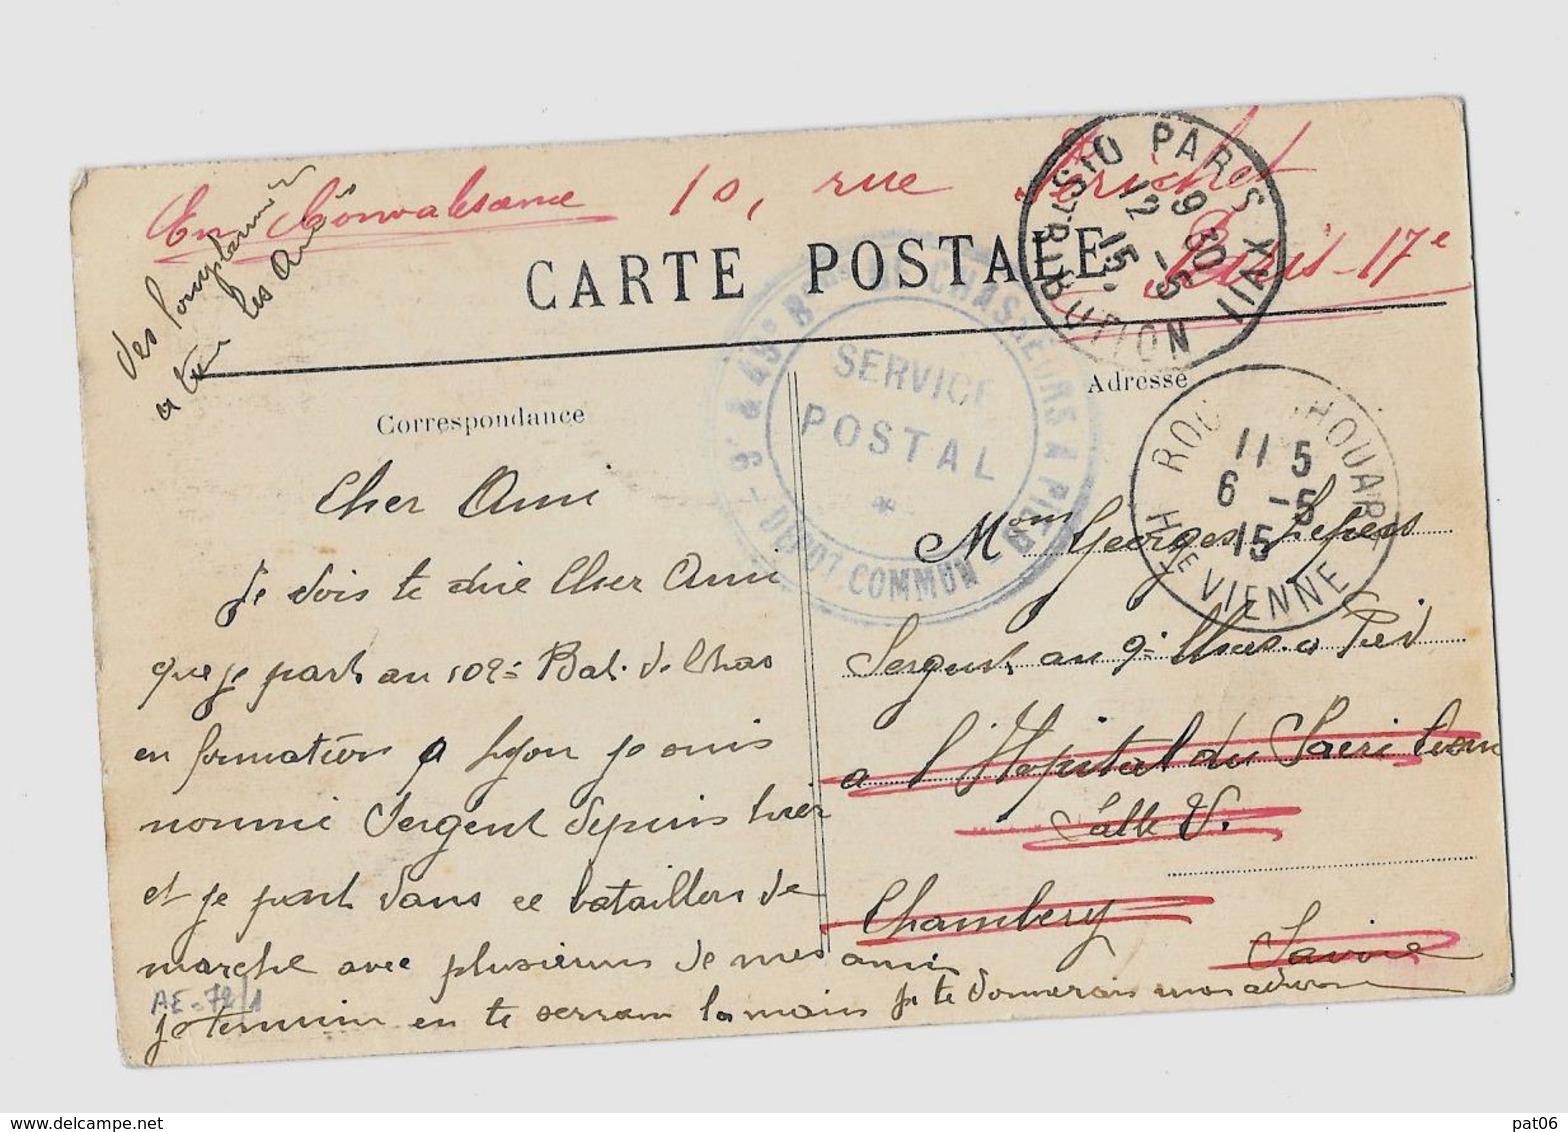 En Convalescence 10, rue
Paris - 17e
des
a les Amis
CARTE POSTALE
PARIS XVII DISTRIBUTION
19 30
12 -5
15.
9e & 49e Bons DE CHASSEURS A PIED
- DEPOT COMMUN -
SERVICE
POSTAL
*
Correspondance
Adresse
ROCHECHOUART
Hte VIENNE
11 5
6 -5
15
Cher Ami
Je dois te dire Cher Ami
que je pars au 102e Bat. de Chas
en formation a Lyon je suis
nommé Sergent depuis hier
et je part dans ce bataillon de
marche avec plusieurs de mes amis
je termine en te serrant la main je te donnerais mon adresse
Monsr Georges
Sergent au 9e Chas. a Pied
a l'Hôpital du Sacré Coeur
Salle V.
Chambery
Savoie
AE-72/1
pat06